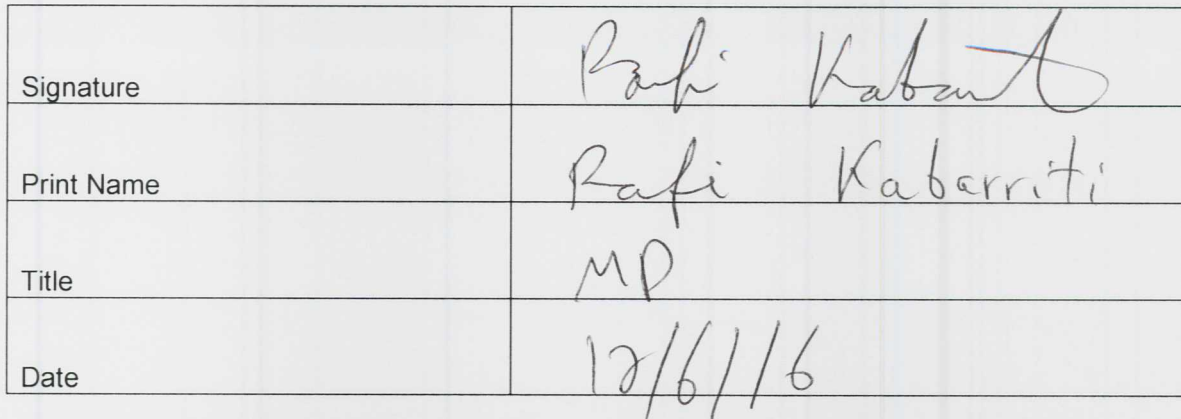 Signature Rafi Kabarriti
Print Name Rafi Kabarriti
Title MD
Date 12/6/16